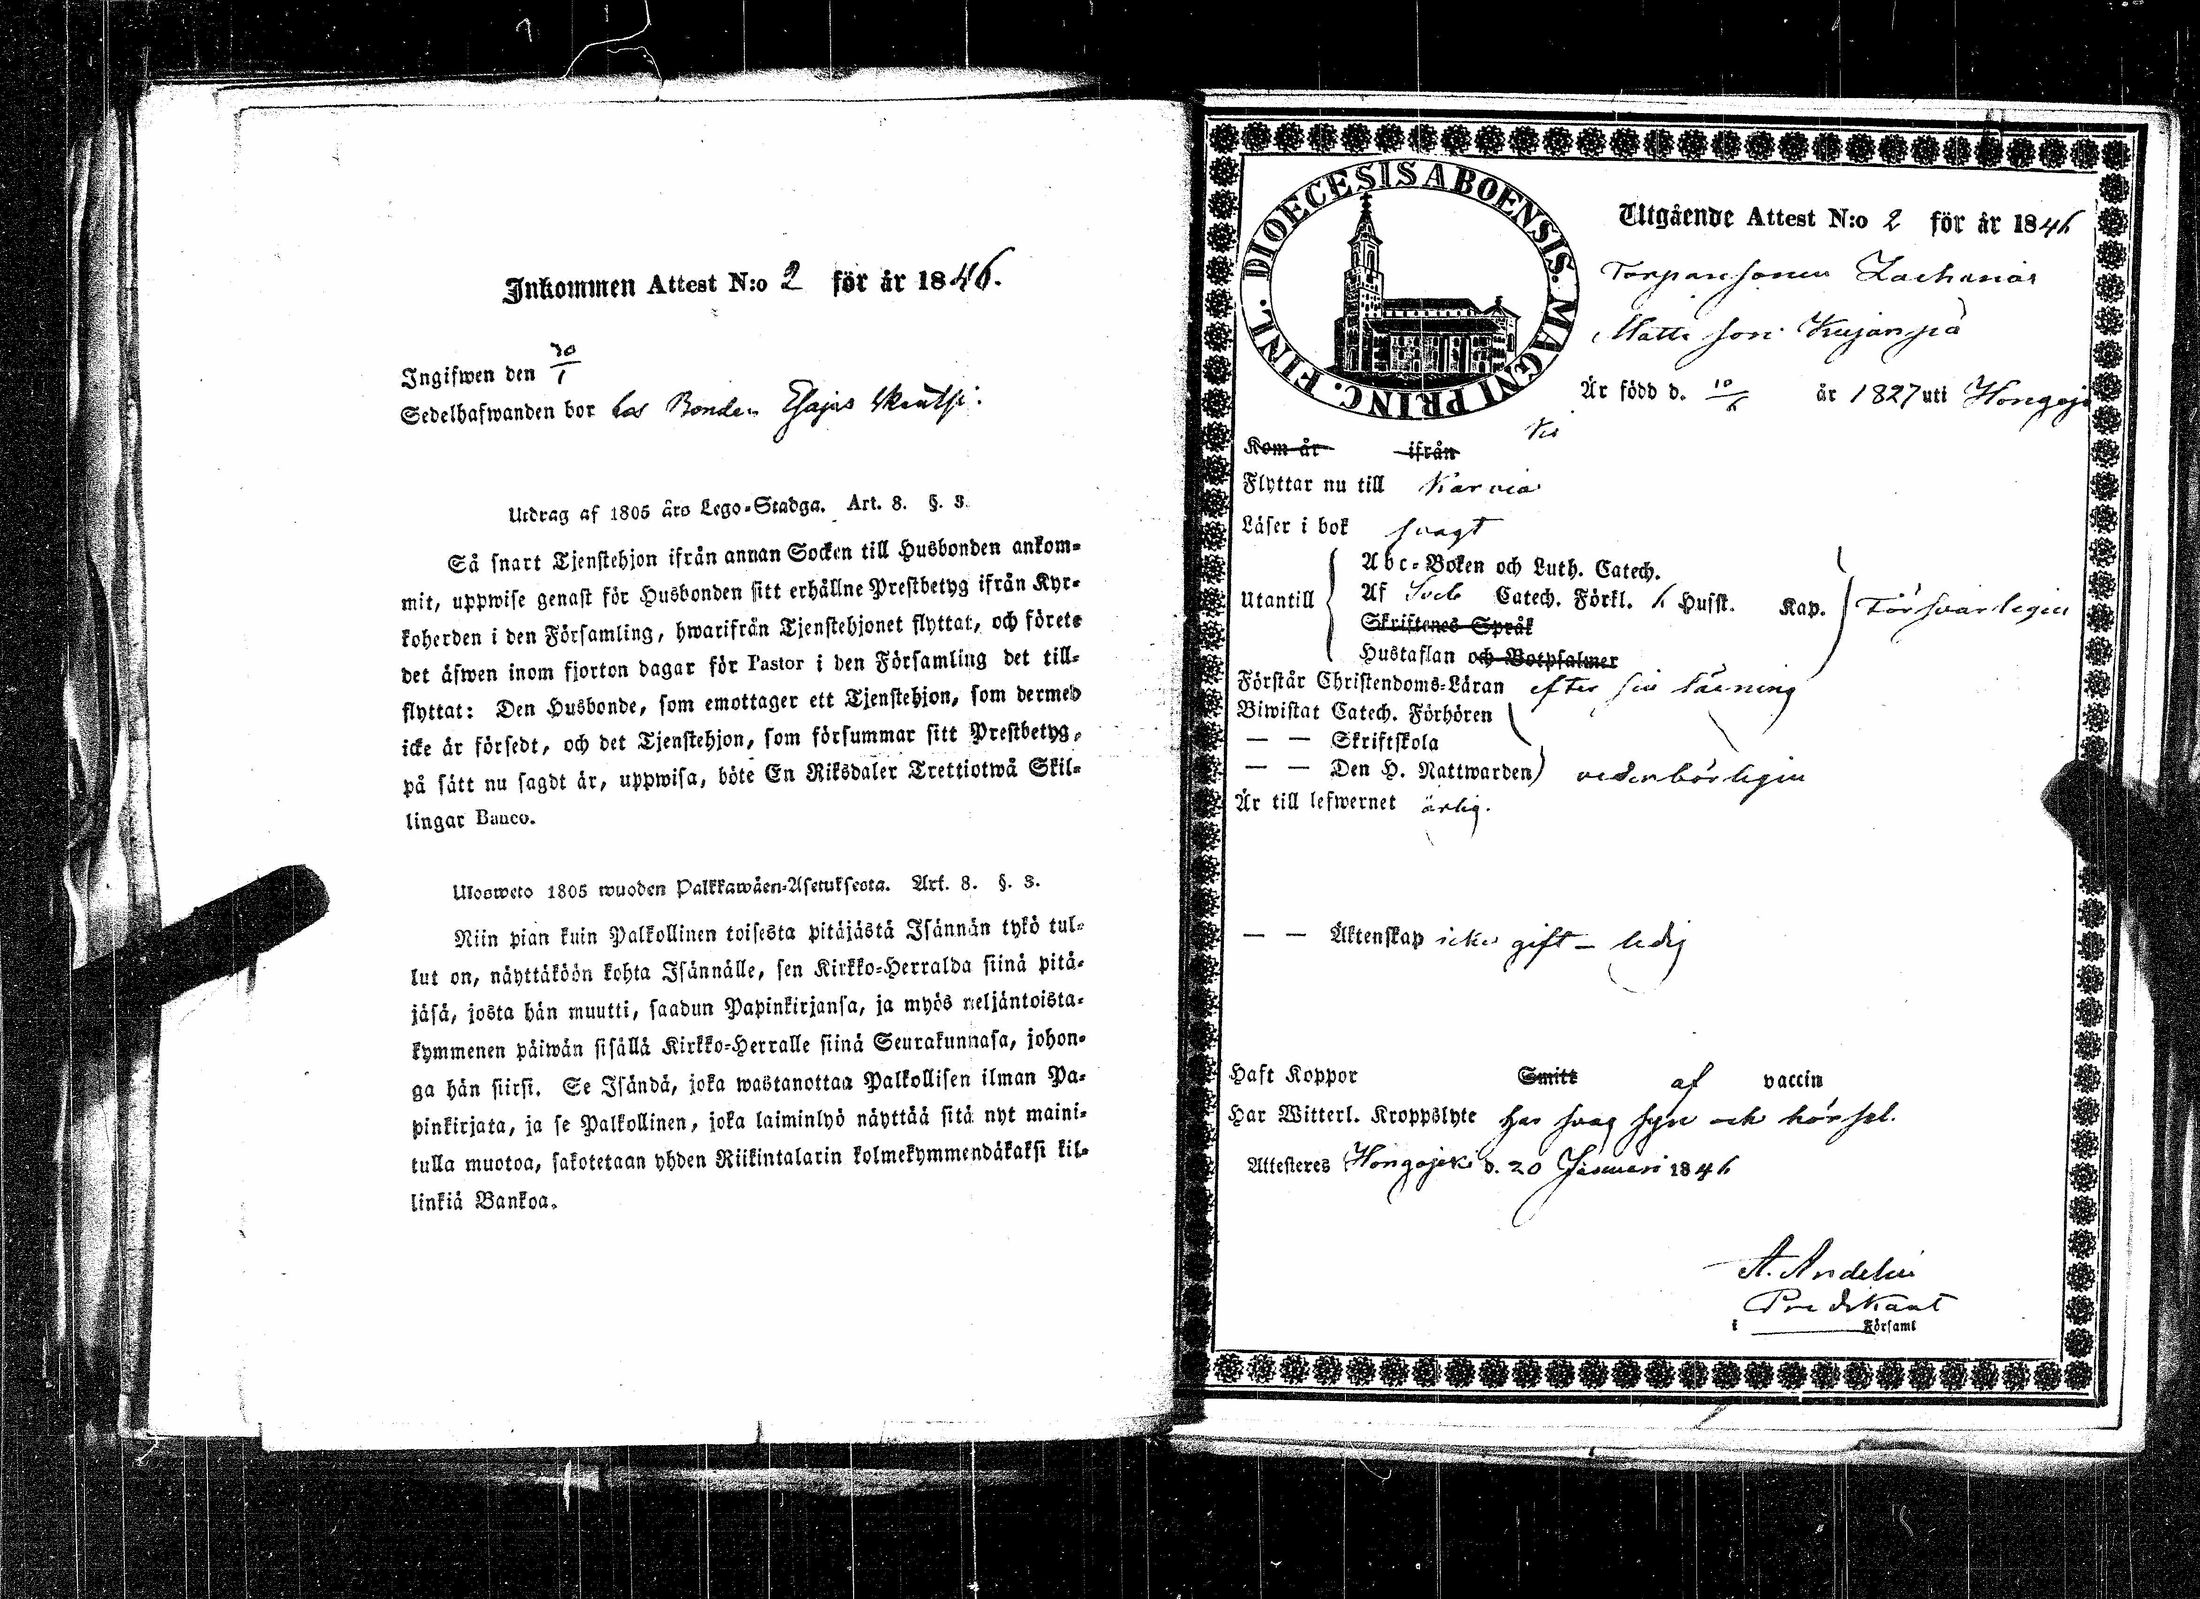 Inkommen Attest N:o 2 för år 1846.
Ingifwen den 30/1
Sedelhafwanden bor hos Bonden Esajas
Utdrag af 1805 års Lego-Stadga. Art. 8. §. 3.
Så snart Tjenstehjon ifrån annan Socken till Husbonden ankom-
mit, uppwise genast för Husbonden sitt erhållne Prestbetyg ifrån Kyr-
koherden i den Församling, hwarifrån Tjenstehjonet flyttat, och förete
det äfwen inom fjorton dagar för Pastor i den Församling det till-
flyttat: Den Husbonde, som emottager ett Tjenstehjon, som dermed
icke är försedt, och det Tjenstehjon, som försummar sitt Prestbetyg,
på sätt nu sagdt är, uppwisa, böte En Riksdaler Trettiotwå Skil-
lingar Banco.
Ulosweto 1805 wuoden Palkkawäen-Asetuksesta. Art. 8. §. 3.
Niin pian kuin Palkollinen toisesta pitäjästä Isännän tykö tul-
lut on, näyttäköön kohta Isännälle, sen Kirkko-Herralda siinä pitä-
jäsä, josta hän muutti, saadun Papinkirjansa, ja myös neljäntoista-
kymmenen päiwän sisällä Kirkko-Herralle siinä Seurakunnasa, johon-
ga hän siirsi. Se Isändä, joka wastanottaa Palkollisen ilman Pa-
pinkirjata, ja se Palkollinen, joka laiminlyö näyttää sitä nyt maini-
tulla muotoa, sakotetaan yhden Riikintalarin kolmekymmendäkaksi kil-
linkiä Bankoa.
DIOECESIS ABOENSIS. MAGNI PRINC. FINL.
Utgående Attest N:o 2 för år 1846
Torparesonen Zacharias
Matts son Kujanpä
Är född d. 10/6 år 1827 uti Hongojo
ki
Kom år ifrån
Flyttar nu till Karvia
Läser i bok svagt
Abc-Boken och Luth. Catech.
Utantill Af Catech. Förkl. Husst. Kap. Försvarligen
Skriftenes Språk
Hustaflan och Botpsalmer
Förstår Christendoms-Läran efter sin läsning
Biwistat Catech. Förhören
— — Skriftskola
— — Den H. Nattwarden vederbörligen
Är till lefwernet ärlig.
— — Äktenskap icke gift - ledig
Haft Koppor Smitt af vaccin
Har Witterl. Kroppslyte har svag syn och hörsel.
Attesteres Hongojoki d. 20 Januari 1846
A. Andelin
Predikant
i Församl